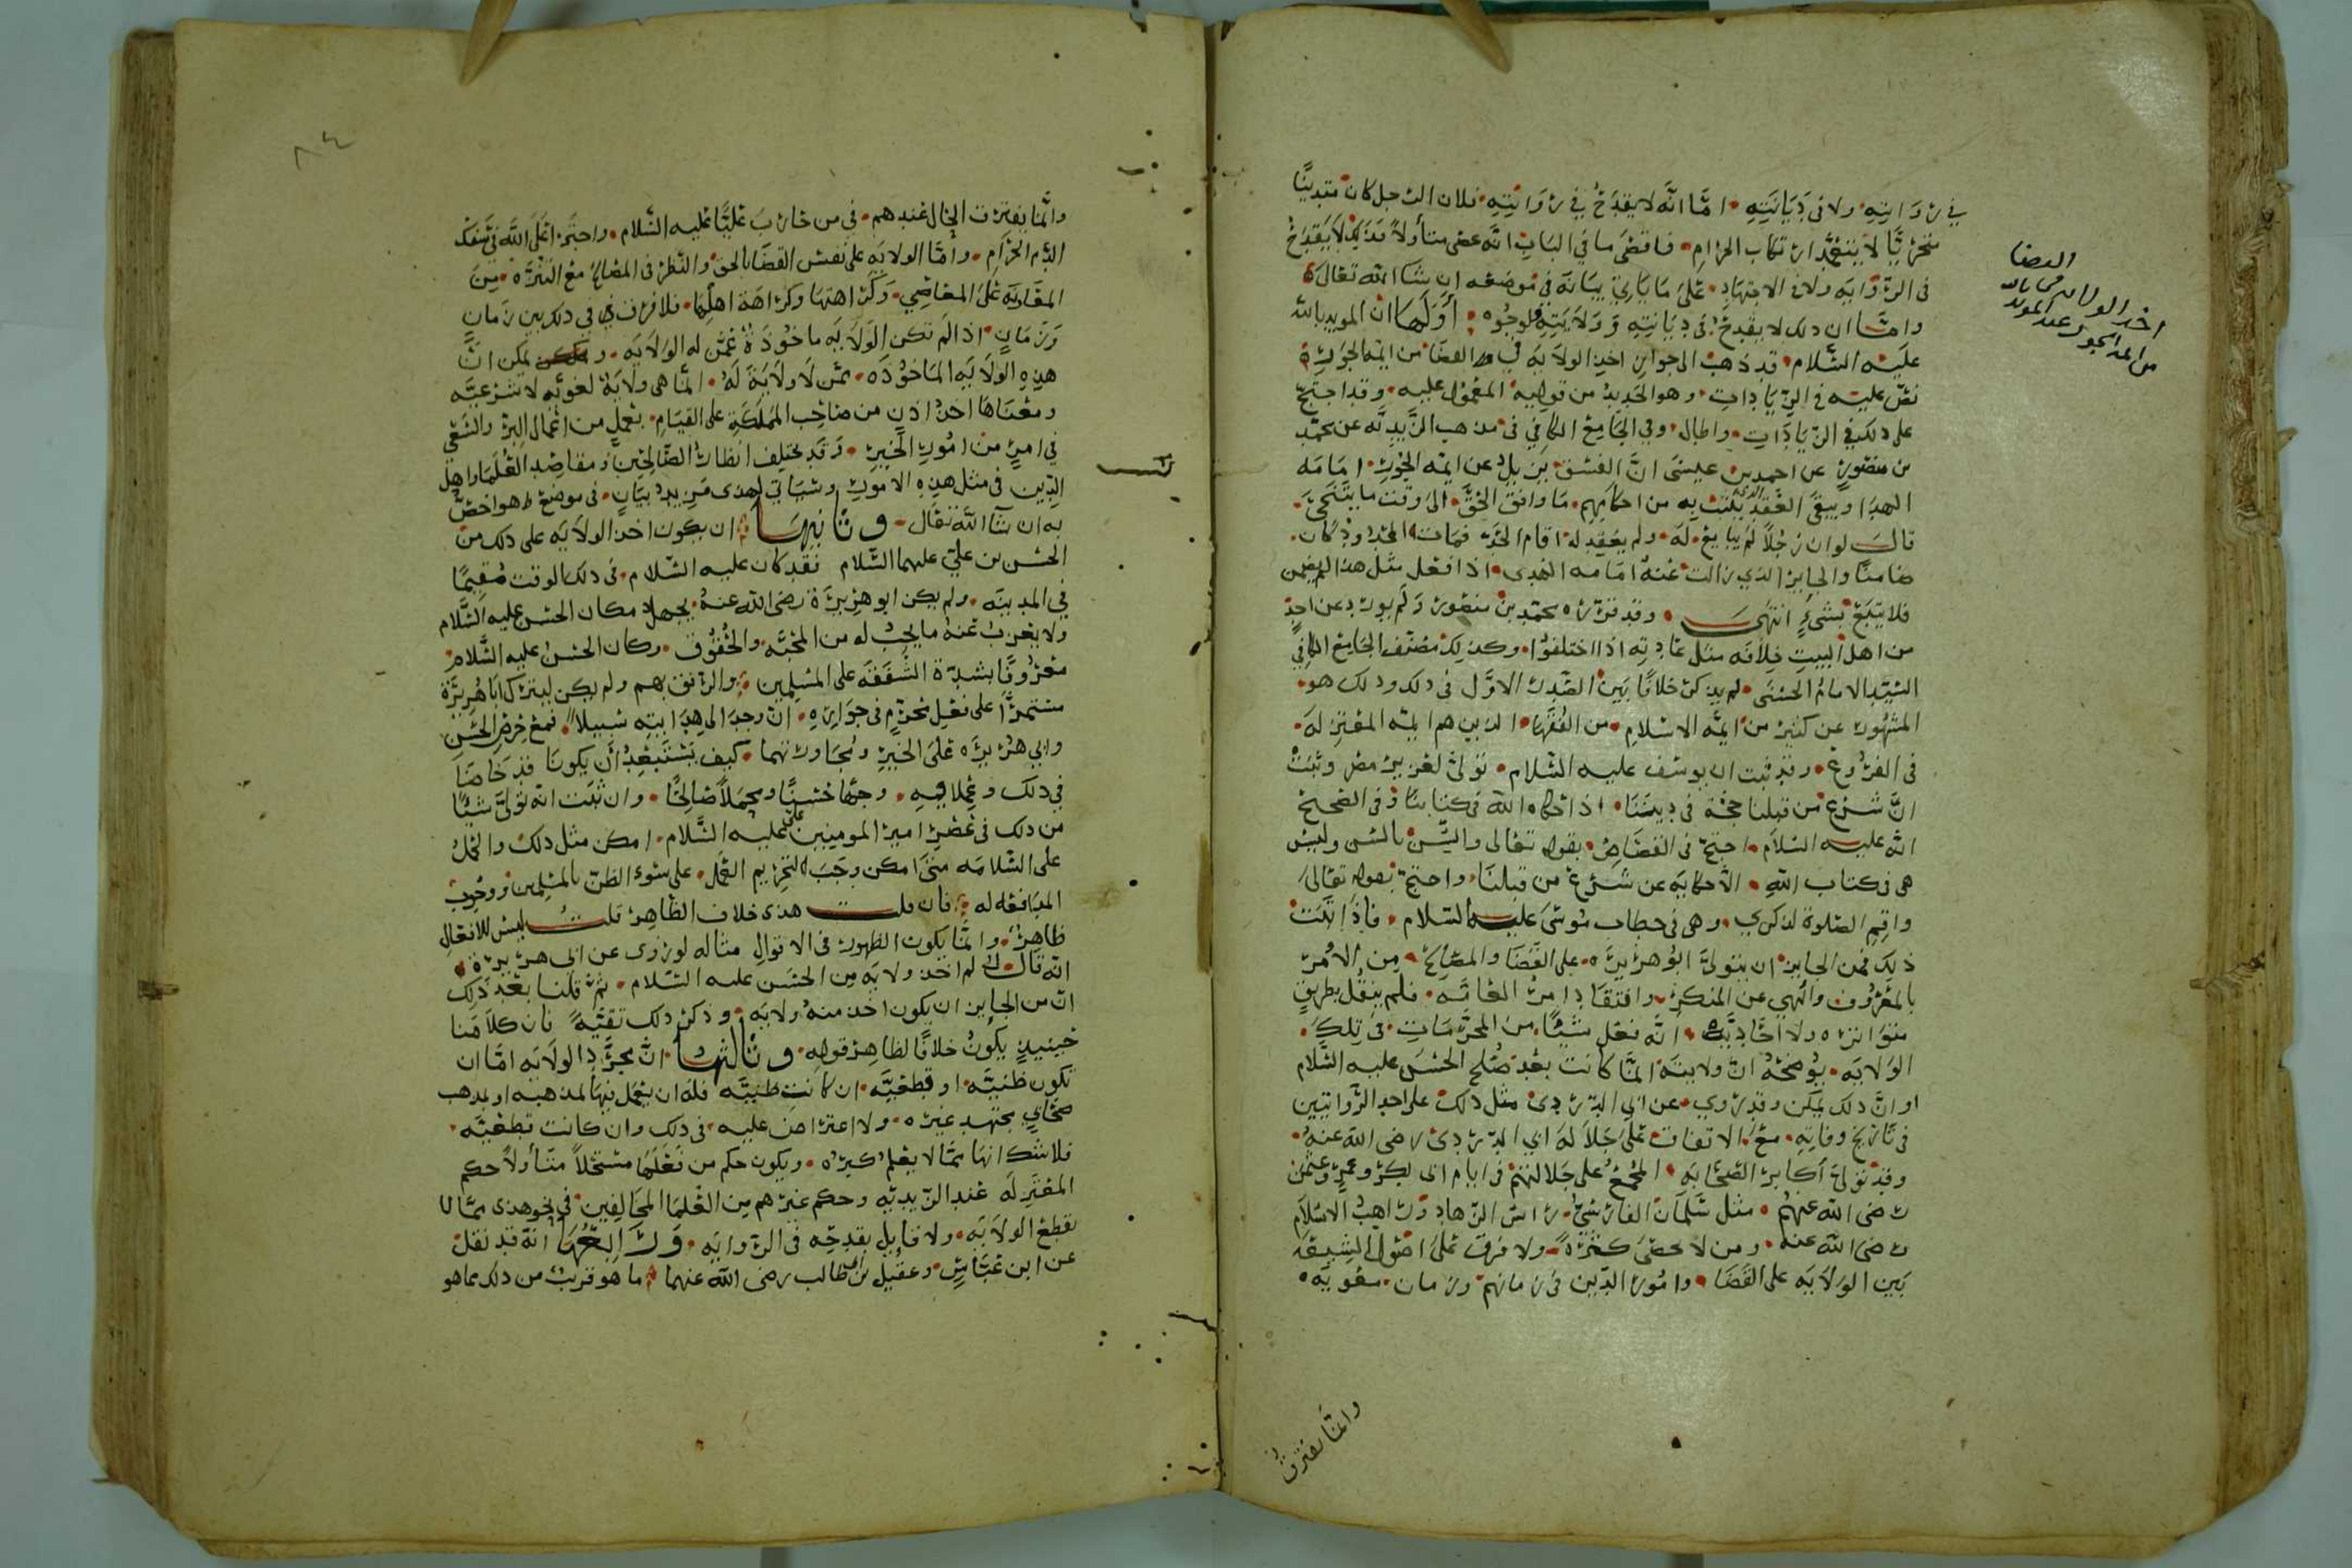 في روايته ولا في ديانته اما انه لا يقدح في روايته فلان الرجل كان متدينًا
متحرّيًا لا يتعمّد ارتكاب الحرام فاقصى ما في الباب انه عصى متأولاً وذلك لا يقدح
في الرواية ولا في الاجتهاد على ما ياتي بيانه في موضعه ان شا الله تعالى
وامّا ان ذلك لا يقدح في ديانته وولايته فلوجوه أولها ان المويد بالله
عليه السلام قد ذهب الى جواز اخذ الولاية في القضا من ايمة الجور
نصّ عليه في الزيادات وهو الجديد من قوليه المعمول عليه وقد احتج
على ذلك في الزيادات واطال وفي الجامع الكافي في مذهب الزيدية عن محمد
بن منصور عن احمد بن عيسى انّ الفسق يزيل عن ايمه الجور امامه
الهدا ويبقى العقد الذي يثبت به من احكامهم ما وافق الحق الى وقت ما يتنحى
قال لو ان رجلاً لم يبايع له ولم يعقد له اقام الحد فمات المحدود كان
ضامنًا والجاير الذي زالت عنه امامه الهدى اذا فعل مثل هذا لم يضمن
فلا يتبع بشيءٍ انتهى وقد قرره محمد بن منصور ولم يورد عن احدٍ
من اهل البيت خلافه مثل عادته اذا اختلفوا وكذلك مصنف الجامع الكافي
السيد الامام الحسني لم يذكر خلافًا بين الصدر الاول في ذلك وذلك هو
المشهور عن كثير من ايمّه الاسلام من الفقها الذين هم ايمه المعتزله
في الفروع وقد ثبت ان يوسف عليه السلام تولى لعزيز مصر وثبت
انّ شرع من قبلنا حجّة في ديننا اذا حكاه الله في كتابنا وفي الصحيح
انه عليه السلام احتج في القصاص بقوله تعالى والسن بالسن وليس
هي في كتاب الله الّا حكاية عن شرع من قبلنا واحتج بقوله تعالى
واقم الصلوة لذكري وهي في خطاب موسى عليه السلام فاذا ثبت
ذلك فمن الجايز ان يتولى ابو هريره على القضا والمصالح من الامر
بالمعروف والنهي عن المنكر وافتقاد امر العامّه فلم ينقل بطريقٍ
متواتره ولا احاديّه انه فعل شيئًا من المحرمات في تلك
الولايه يوضحه ان ولايته انما كانت بعد صلح الحسن عليه السلام
او انّ ذلك يمكن وقد روي عن ابي الدردى مثل ذلك على احد الروايتين
في تاريخ وفاته مع الاتفاق على جلاله ابي الدردى رضى الله عنه
وقد تولى أكابر الصحابه المجمع على جلالتهم في ايام ابى بكر وعمر وعثمن
رضى الله عنهم مثل سلمان الفارسي راس الزهاد وراهب الاسلام
رضى الله عنه ومن لا يحصى كثرةً ولا فرق على اصول الشيعه
بين الولايه على القضا وامور الدين في زمانهم وزمان معويه
اخذ الولايه من
القضا
من ايمة الجور عند المويد
بالله
وانما يفترق
٨٤
وانّما يفترق الحال عندهم في من حارب عليًا عليه السلام واجترا على الله في سفك
الدم الحرام وامّا الولايه على نفس القضا بالحق والنظر في المصالح مع التنزه من
المعاونه على المعاصي وكراهتها وكراهة اهلها فلا فرق في ذلك بين زمانٍ
وزمانٍ اذا لم تكن الولايه ماخوذة عمّن له الولايه ويمكن انّ
هذه الولايه الماخوذه ممّن لا ولاية له انّما هى ولاية لغويّه لا شرعيّه
ومعناها اخذ اذنٍ من صاحب المملكة على القيام بعملٍ من اعمال البرّ والسعي
في امرٍ من امور الخير وقد تختلف انظار الصالحين ومقاصد العلما واهل
الدين في مثل هذه الامور وسياتي لهذى مزيد بيانٍ في موضع هو اخصّ
به ان شآ الله تعالى وثانيها ان يكون اخذ الولايه على ذلك من
الحسن بن علي عليهما السلام فقد كان عليه السلام في ذلك الوقت مقيمًا
في المدينه ولم يكن ابو هريرة رضى الله عنه يجهل مكان الحسن عليه السلام
ولا يعزب عنه ما يجب له من المحبّه والحقوق وكان الحسن عليه السلام
معروفًا بشدة الشفقه على المسلمين والرفق بهم ولم يكن ليترك ابا هريرة
مستمرًا على فعل محرّمٍ في جواره ان وجد الى هدايته سبيلاً فمع حرص الحسن
وابي هريره على الخير وتجاورتهما كيف يستبعد أن يكونا قد خاضا
في ذلك وعملا فيه وجهًا حسنًا ومحملاً صالحًا وان ثبت انه تولّى شيئًا
من ذلك في عصر امير المومنين على عليه السلام امكن مثل ذلك والحمل
على السلامه متى امكن وجب لتحريم الحمل على سوء الظن بالمسلمين ووجوب
المدافعه له فان قلت هذى خلاف الظاهر قلت ليس للافعال
ظاهرٌ وانّما يكون الظهور في الاقوال مثاله لو روى عن ابى هريرة
انّه قال انّي لم اخذ ولايه من الحسن عليه السلام ثم قلنا بعد ذلك
انّ من الجايز ان يكون اخذ منه ولايه وذكر ذلك تقيّةً فان كلامنا
حينيذٍ يكون خلافًا لظاهر قوله وثالثها انّ مجرّد الولايه امّا ان
تكون ظنيّه او قطعيّه ان كانت ظنيّه فله ان يعمل فيها لمذهبه او لمذهب
صحابي مجتهد غيره ولا اعتراض عليه في ذلك وان كانت قطعيّه
فلا شك انها ممّا لا يعلم كبره ويكون حكم من فعلها مستحلاً متأولاً حكم
المعتزله عند الزيديّه وحكم غيرهم من العلما المخالفين في نحو هذى ممّا لا
يقطع الولايه ولا قايل بقدحِه في الروايه ورابعها انه قد نقل
عن ابن عبّاسٍ وعقيل بن ابى طالب رضى الله عنهما ما هو قريب من ذلك مما هو